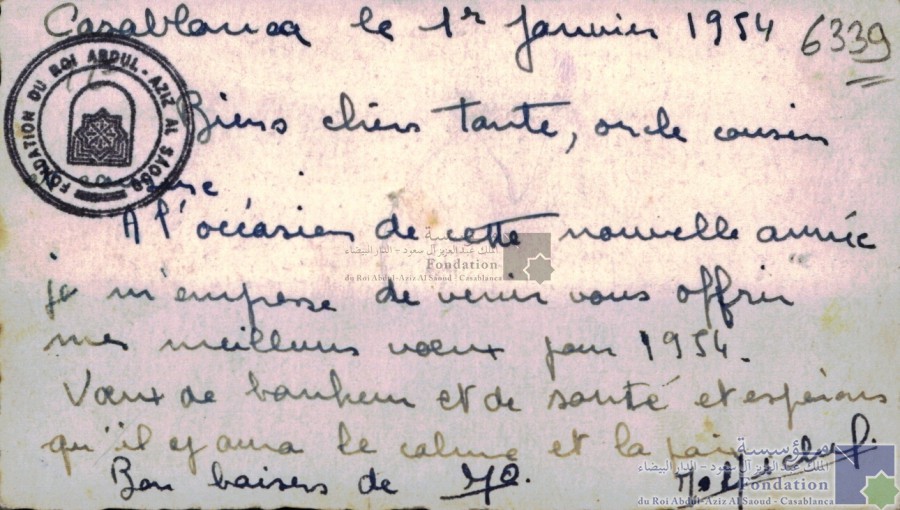 Casablanca le 1r Janvier 1954
6339
FONDATION DU ROI ABDUL-AZIZ AL SAOUD
Biens chers tante, oncle cousin
A l'occasion de cette nouvelle année
je m'empresse de venir vous offrir
mes meilleurs vœux pour 1954.
Vœux de bonheur et de santé et espérons
qu'il y aura le calme et la paix
Bon baisers de
مؤسسة
الملك عبد العزيز آل سعود - الدار البيضاء
Fondation
du Roi Abdul-Aziz Al Saoud - Casablanca
مؤسسة
الملك عبد العزيز آل سعود - الدار البيضاء
Fondation
du Roi Abdul-Aziz Al Saoud - Casablanca